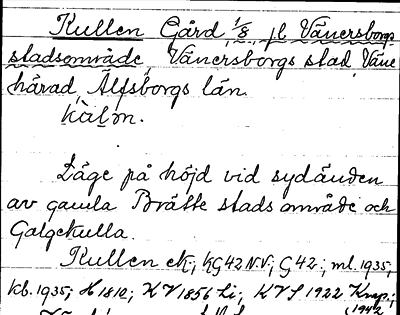 Kullen Gård 1/8 fl Vänersborgs
stadsområde, Vänersborgs stad, Väne
härad, Älfsborgs län.
kùlɘn.
Läge på höjd vid sydänden
av gamla Brätte stadsområde och
Galgekulla.
Kullen ek; KG42 N.V.; G42; ml. 1935;
kb. 1935; H 1810; KV 1856 Li; KVS 1922
(1942